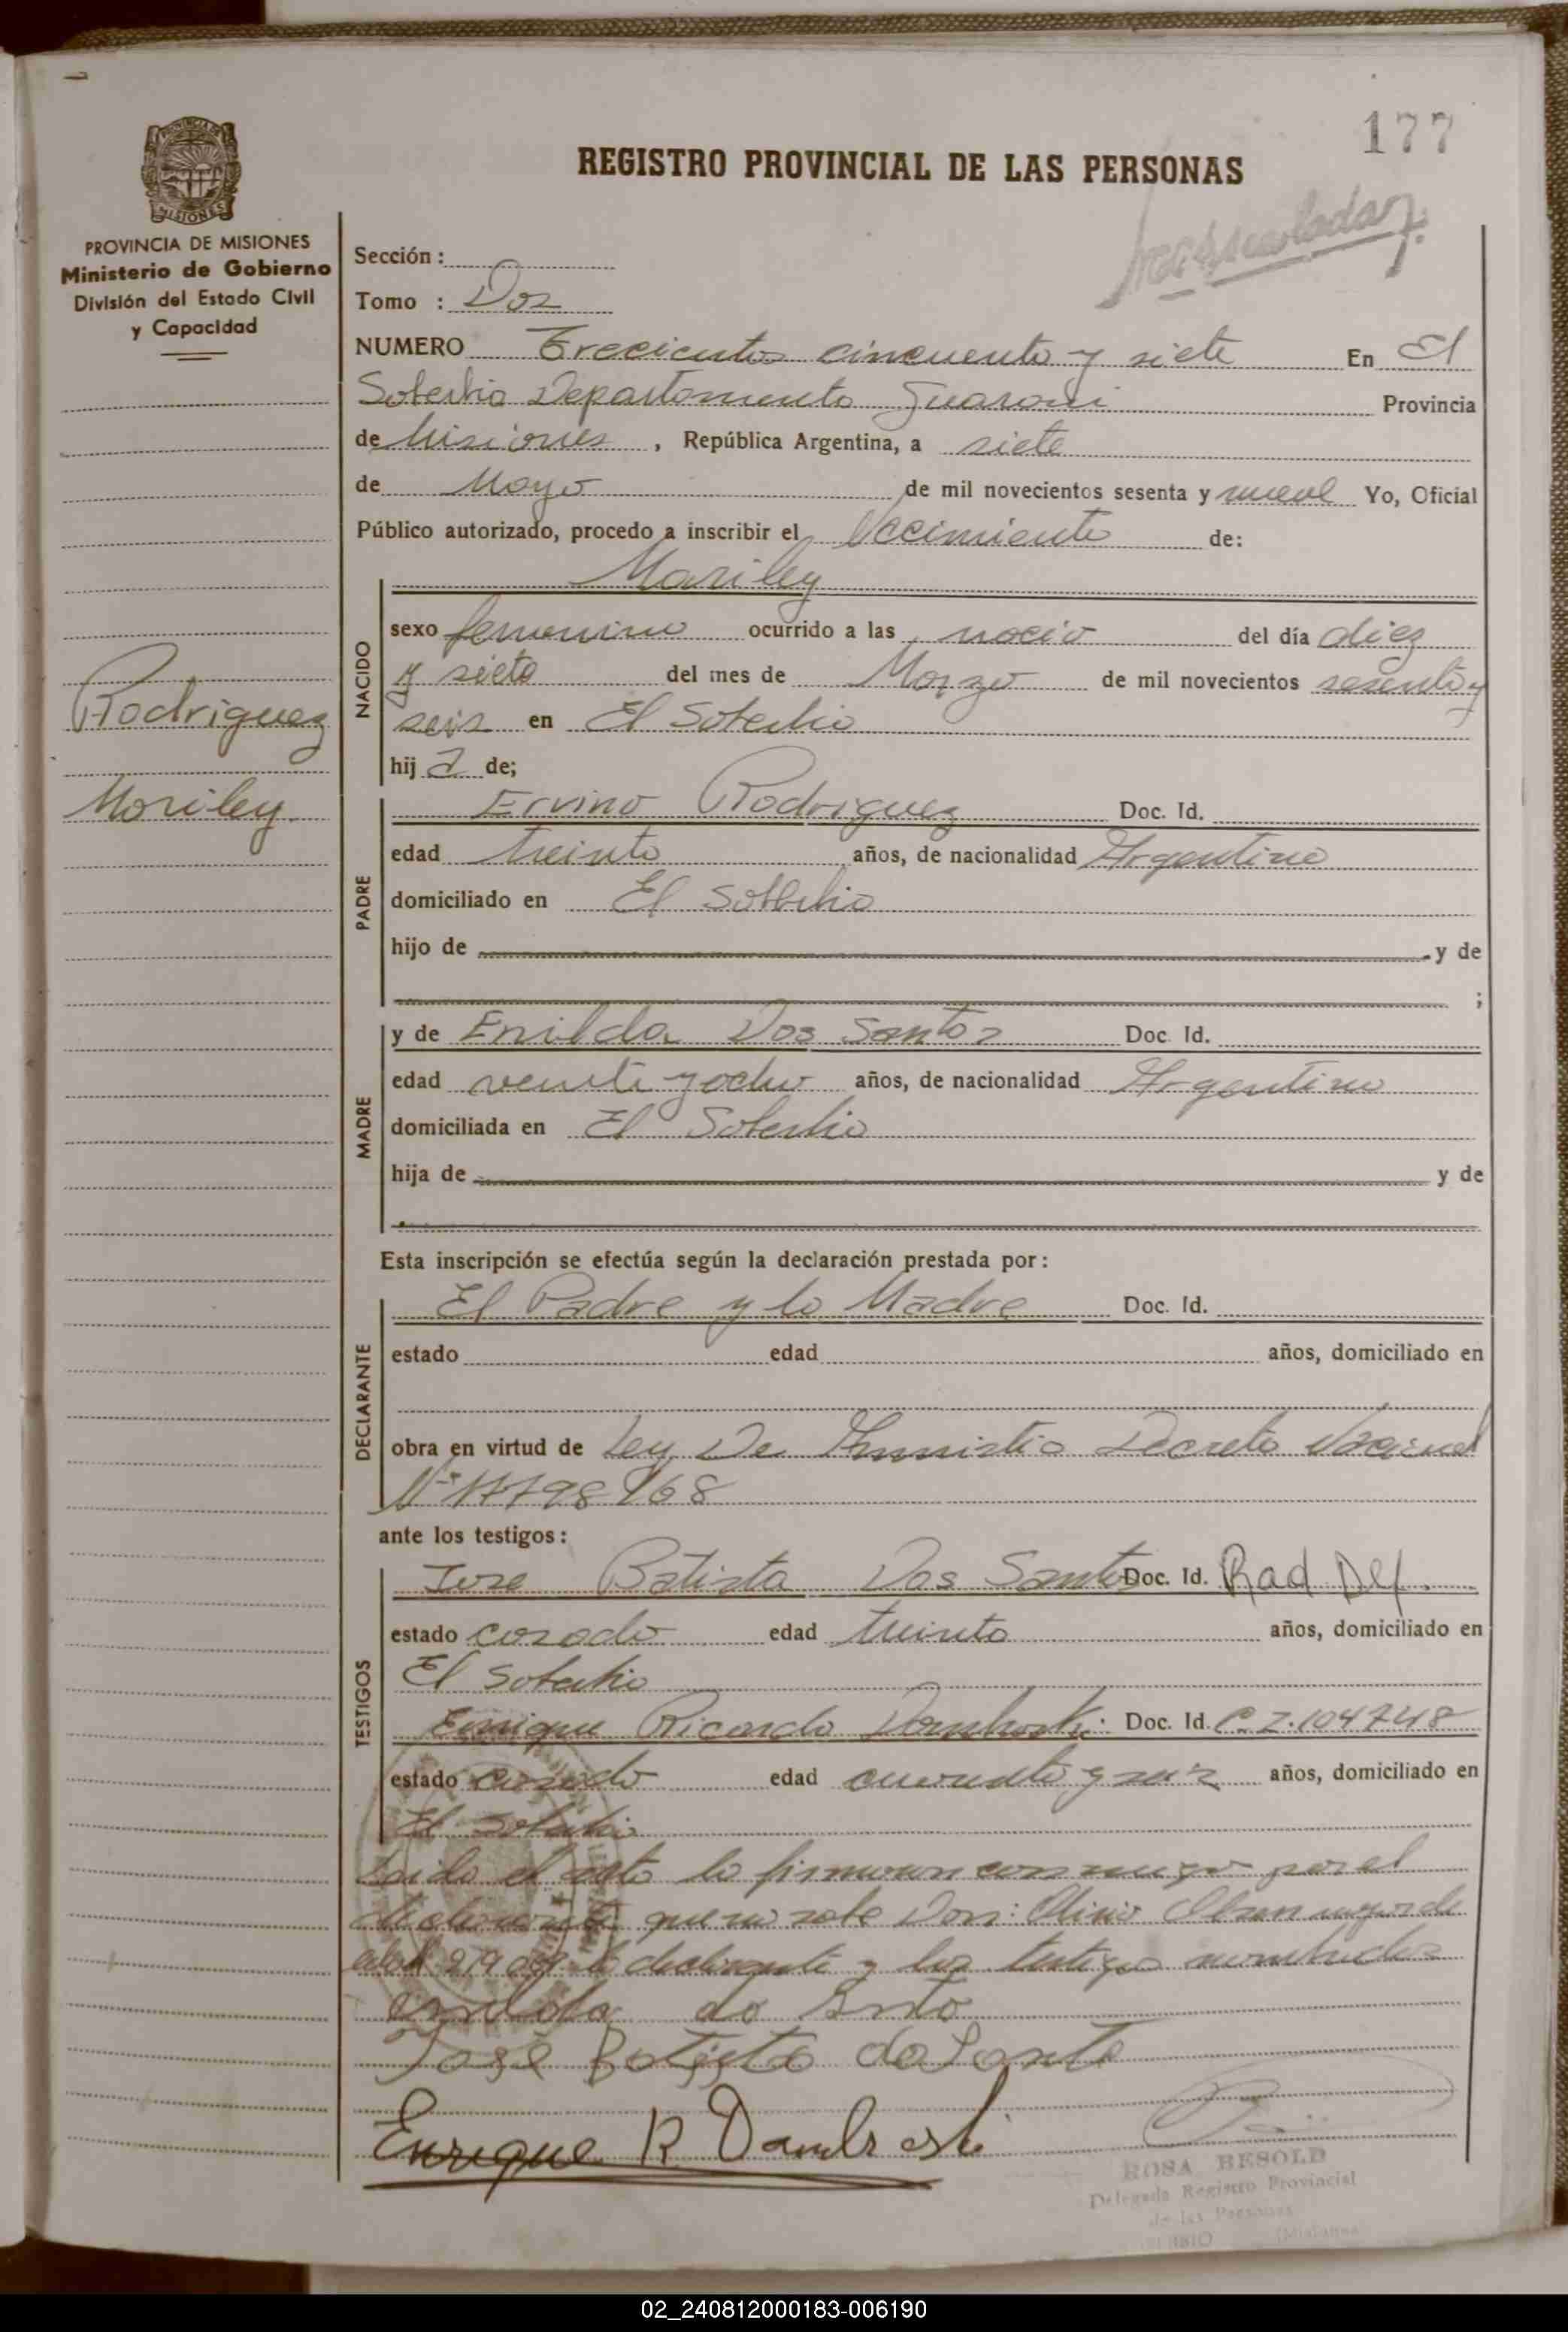 177
REGISTRO PROVINCIAL DE LAS PERSONAS
PROVINCIA DE MISIONES
Ministerio de Gobierno
División del Estado Civil
y Capacidad
Sección :
Tomo : Dos
NUMERO Trecientos cincuenta y siete En El
Soberbio Departamento Guarani Provincia
de Misiones , República Argentina, a siete
de Mayo de mil novecientos sesenta y nueve Yo, Oficial
Público autorizado, procedo a inscribir el Nacimiento de:
Mariley
NACIDO
sexo femenino ocurrido a las nacio del día diez
y siete del mes de Marzo de mil novecientos sesenta y
seis en El Soberbio
hij a de;
Rodriguez
Mariley.
PADRE
Ervino Rodriguez Doc. Id.
edad treinta años, de nacionalidad Argentina
domiciliado en El Soberbio
hijo de y de
;
MADRE
y de Enilda Dos Santos Doc. Id.
edad veinte y ocho años, de nacionalidad Argentina
domiciliada en El Soberbio
hija de y de
Esta inscripción se efectúa según la declaración prestada por :
DECLARANTE
El Padre y la Madre Doc. Id.
estado edad años, domiciliado en
obra en virtud de Ley De Amnistia Decreto Nacional
Nº 17798/68
ante los testigos :
TESTIGOS
Jose Batista Dos Santos Doc. Id. Rad Def.
estado casado edad treinta años, domiciliado en
El Soberbio
Enrique Ricardo Dombroski Doc. Id. C.I. 104748
estado casado edad cuarenta y seis años, domiciliado en
El Soberbio
Leida el acta la firmaron conmigo por el
declarante que no sabe Don: mayor de
edad la declarante y los testigos nombrados
enilda do Santo
José Batista do Santo
Enrique R Dombroski
ROSA BESOLD
Delegada Registro Provincial
de las Personas
02_240812000183-006190